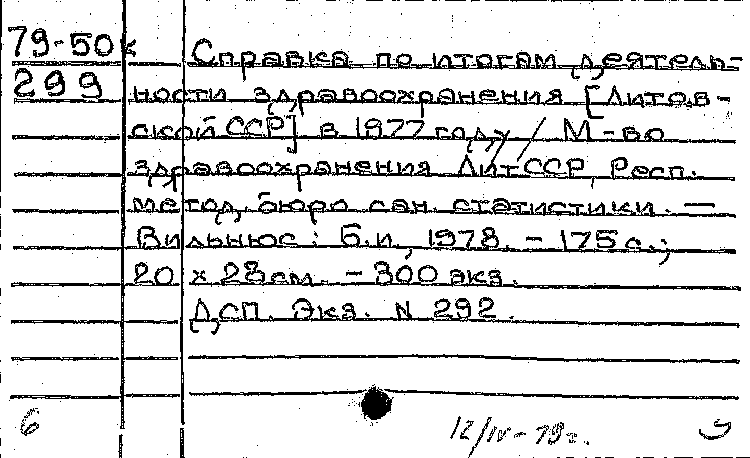 79-50к
299
Справка по итогам деятель-
ности здравоохранения [Литов-
ской ССР] в 1977 году / М-во
здравоохранения ЛитССР, Респ.
метод. бюро сан. статистики. —
Вильнюс : Б.и, 1978. - 175 с.;
20 х 28 см. - 300 экз.
ДСП. Экз. N 292.
6
12/IV-79г.